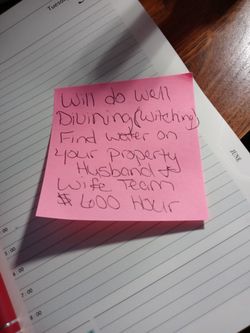 Tuesday
Will do Well
Divining (witching)
Find water on
your property
Husband &
Wife Team
$ 600 Hour
JUNE
JUNE
5:00
6:00
7:00
8:00